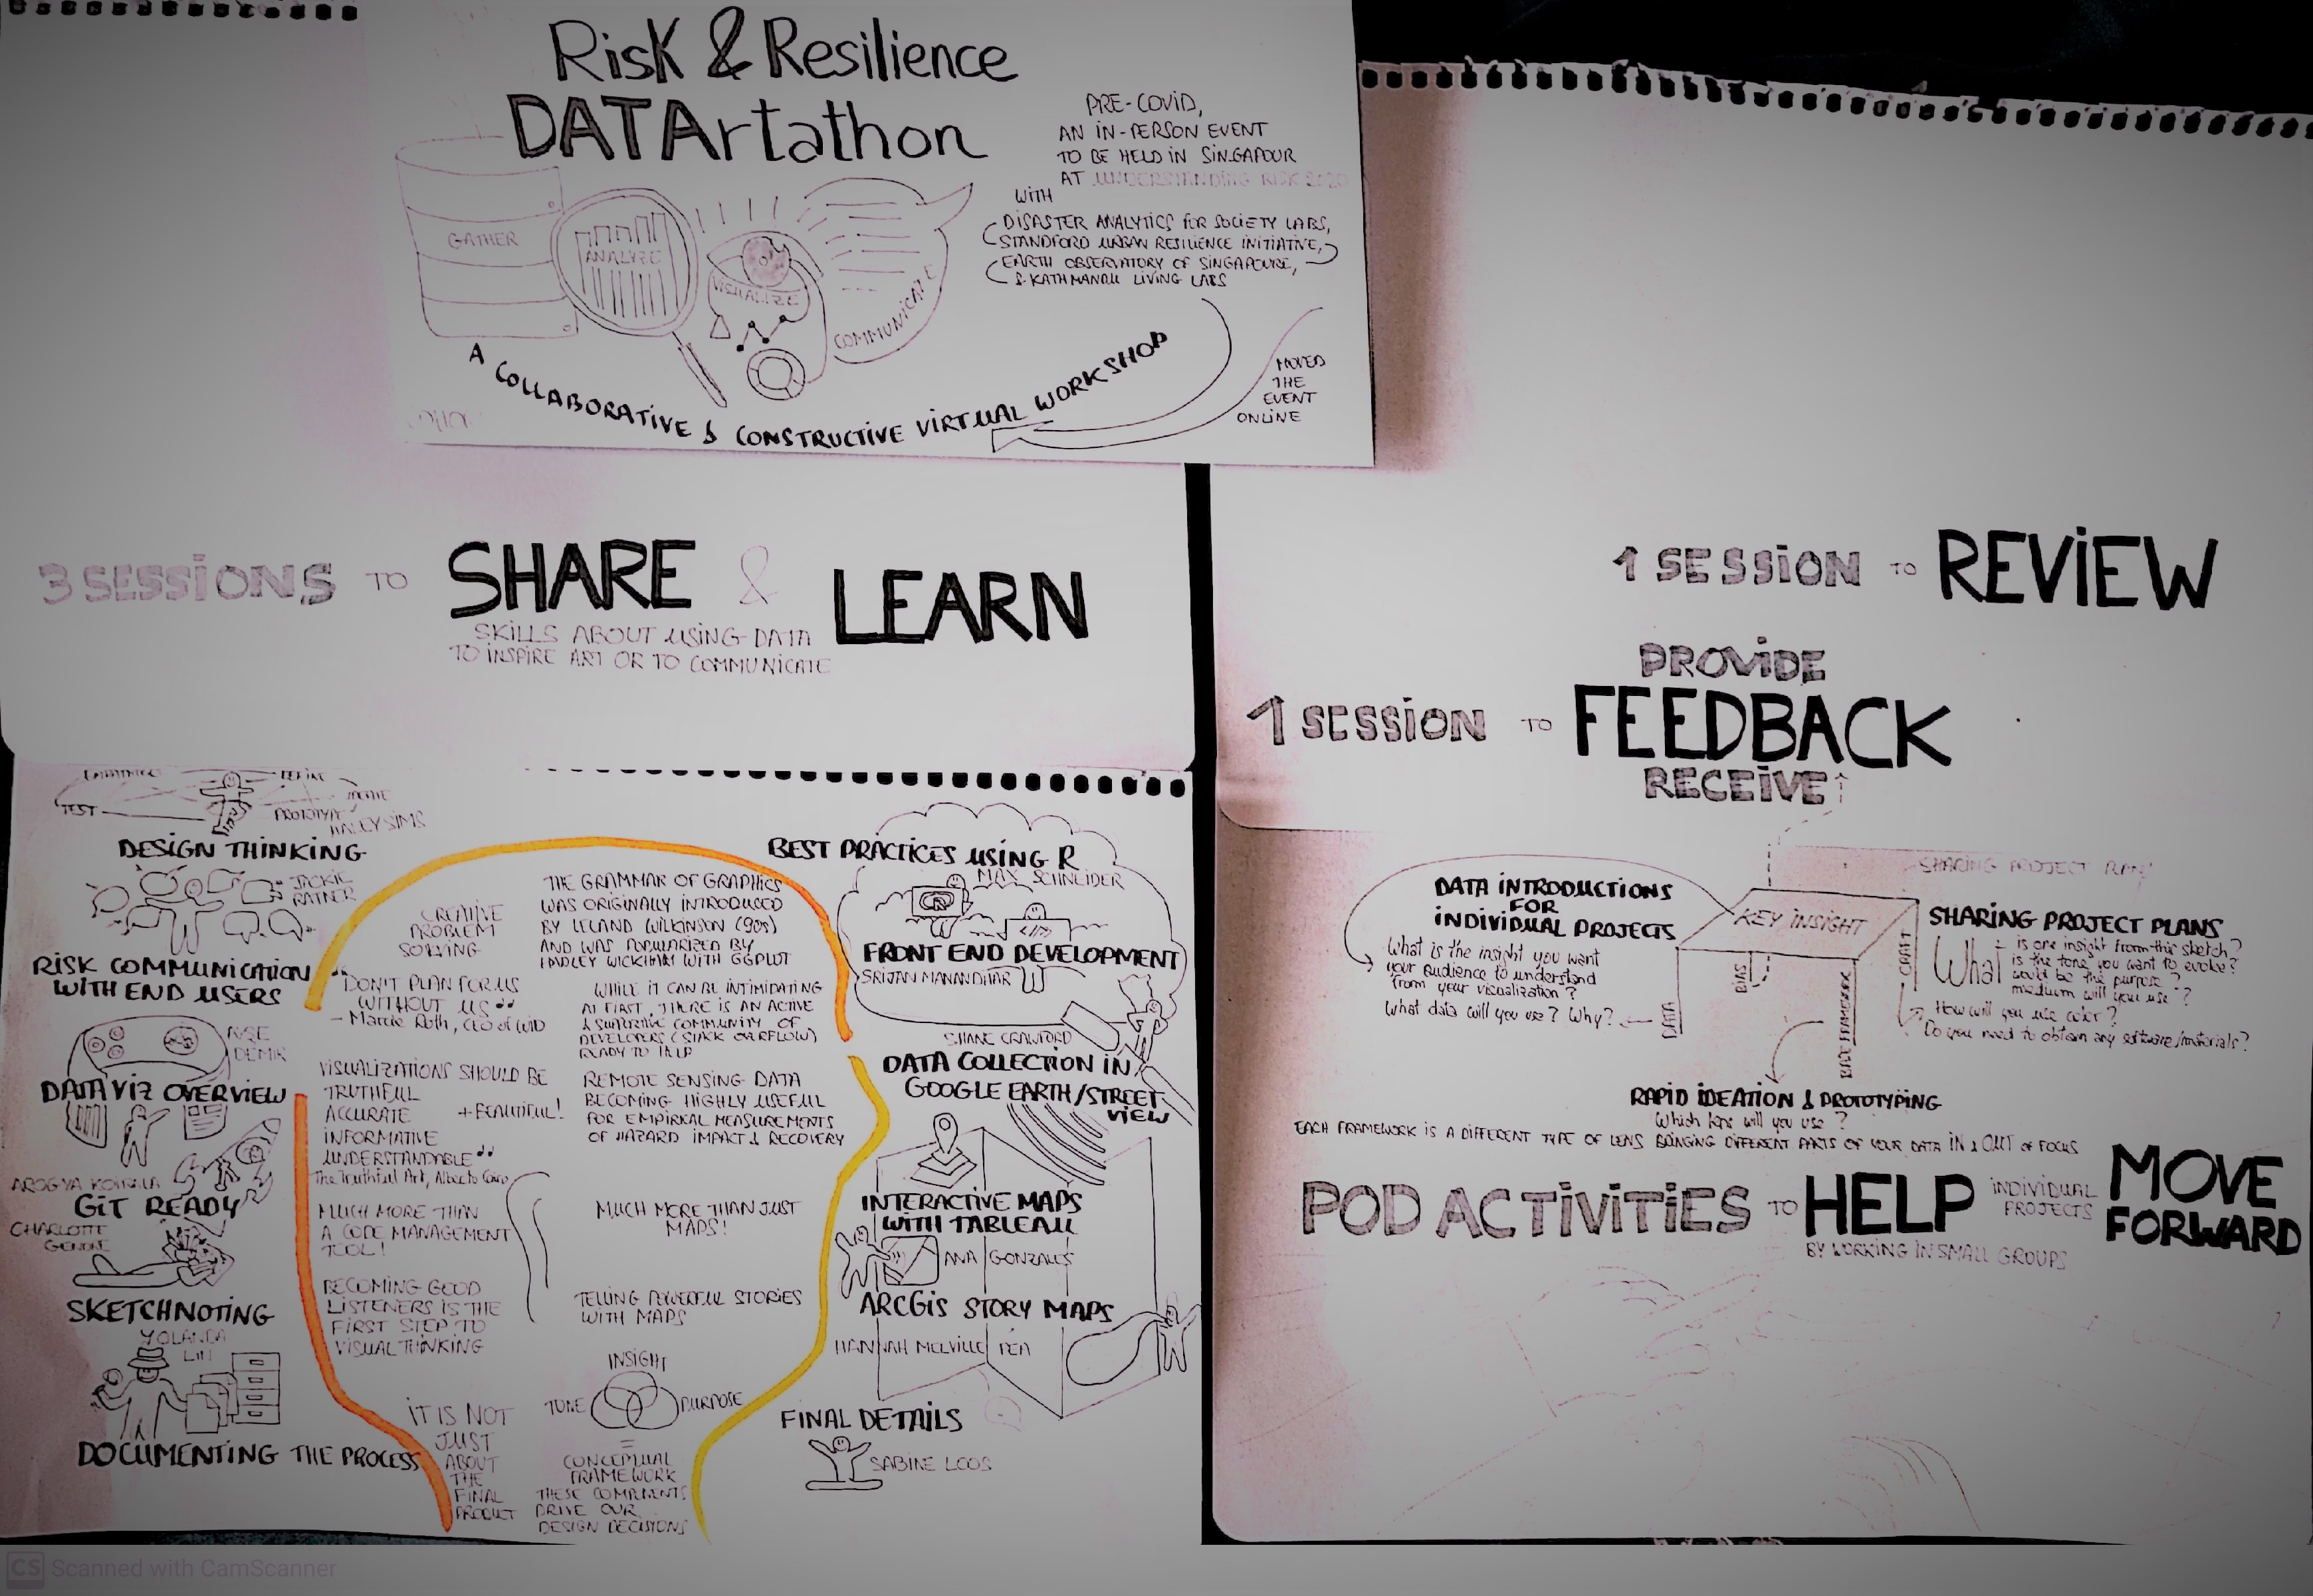 Risk & Resilience
DATArtathon
PRE-COVID,
AN IN-PERSON EVENT
TO BE HELD IN SINGAPOUR
AT UNDERSTANDING RISK 2020
WITH
DISASTER ANALYTICS FOR SOCIETY LABS,
STANDFORD URBAN RESILIENCE INITIATIVE,
EARTH OBSERVATORY OF SINGAPOURE,
& KATHMANDU LIVING LABS
GATHER
ANALYZE
VISUALIZE
COMMUNICATE
A COLLABORATIVE & CONSTRUCTIVE VIRTUAL WORKSHOP
MOVED
THE
EVENT
ONLINE
3 SESSIONS TO SHARE & LEARN
SKILLS ABOUT USING DATA
TO INSPIRE ART OR TO COMMUNICATE
TEST
PROTOTYPE
HALLY SIMS
DESIGN THINKING
JACKIE
RATNER
RISK COMMUNICATION
WITH END USERS
DEMIR
DATA VIZ OVERVIEW
AROGYA KOIRALA
GIT READY
CHARLOTTE
SKETCHNOTING
YOLANDA
LIN
DOCUMENTING THE PROCESS
CREATIVE
PROBLEM
SOLVING
"DON'T PLAN FOR US
WITHOUT US"
- Marcie Roth, CEO of WID
VISUALIZATIONS SHOULD BE
TRUTHFUL
ACCURATE + BEAUTIFUL!
INFORMATIVE
UNDERSTANDABLE"
The Truthful Art, Alberto Cairo
MUCH MORE THAN
A CODE MANAGEMENT
TOOL!
BECOMING GOOD
LISTENERS IS THE
FIRST STEP TO
VISUAL THINKING
IT IS NOT
JUST
ABOUT
THE
FINAL
PRODUCT
THE GRAMMAR OF GRAPHICS
WAS ORIGINALLY INTRODUCED
BY LELAND WILKINSON (90s)
AND WAS POPULARIZED BY
HADLEY WICKHAM WITH GGPLOT
WHILE IT CAN BE INTIMIDATING
AT FIRST, THERE IS AN ACTIVE
& SUPPORTIVE COMMUNITY OF
DEVELOPERS (STACK OVERFLOW)
READY TO HELP
REMOTE SENSING DATA
BECOMING HIGHLY USEFUL
FOR EMPIRICAL MEASUREMENTS
OF HAZARD IMPACT & RECOVERY
MUCH MORE THAN JUST
MAPS!
TELLING POWERFUL STORIES
WITH MAPS
INSIGHT
TONE
PURPOSE
=
CONCEPTUAL
FRAMEWORK
THESE COMPONENTS
DRIVE OUR
DESIGN DECISIONS
BEST PRACTICES USING R
MAX SCHNEIDER
FRONT END DEVELOPMENT
SRIJAN MANANDHAR
SHANE CRAWFORD
DATA COLLECTION IN
GOOGLE EARTH/STREET
VIEW
INTERACTIVE MAPS
WITH TABLEAU
ANA GONZALES
ARCGIS STORY MAPS
HANNAH MELVILLE REA
FINAL DETAILS
SABINE LOOS
1 SESSION TO REVIEW
PROVIDE
1 SESSION TO FEEDBACK
RECEIVE
SHARING PROJECT PLAN
DATA INTRODUCTIONS
FOR
INDIVIDUAL PROJECTS
What is the insight you want
your audience to understand
from your visualization?
What data will you use? Why?
KEY INSIGHT
DATA
BIAS
CRAFT
SHARING PROJECT PLANS
What
is one insight from this sketch?
is the tone you want to evoke?
would be the purpose?
medium will you use?
How will you use color?
Do you need to obtain any software/materials?
RAPID IDEATION & PROTOTYPING
Which lens will you use?
EACH FRAMEWORK IS A DIFFERENT TYPE OF LENS BRINGING DIFFERENT PARTS OF YOUR DATA IN & OUT OF FOCUS
POD ACTIVITIES TO HELP INDIVIDUAL PROJECTS MOVE FORWARD
BY WORKING IN SMALL GROUPS
CS Scanned with CamScanner